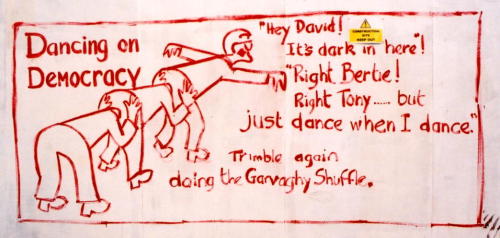 Dancing on
Democracy
"Hey David!
It's dark in here"!
"Right Bertie!
Right Tony...... but
just dance when I dance."
Trimble again
doing the Garvaghy Shuffle.
CONSTRUCTION
SITE
KEEP OUT